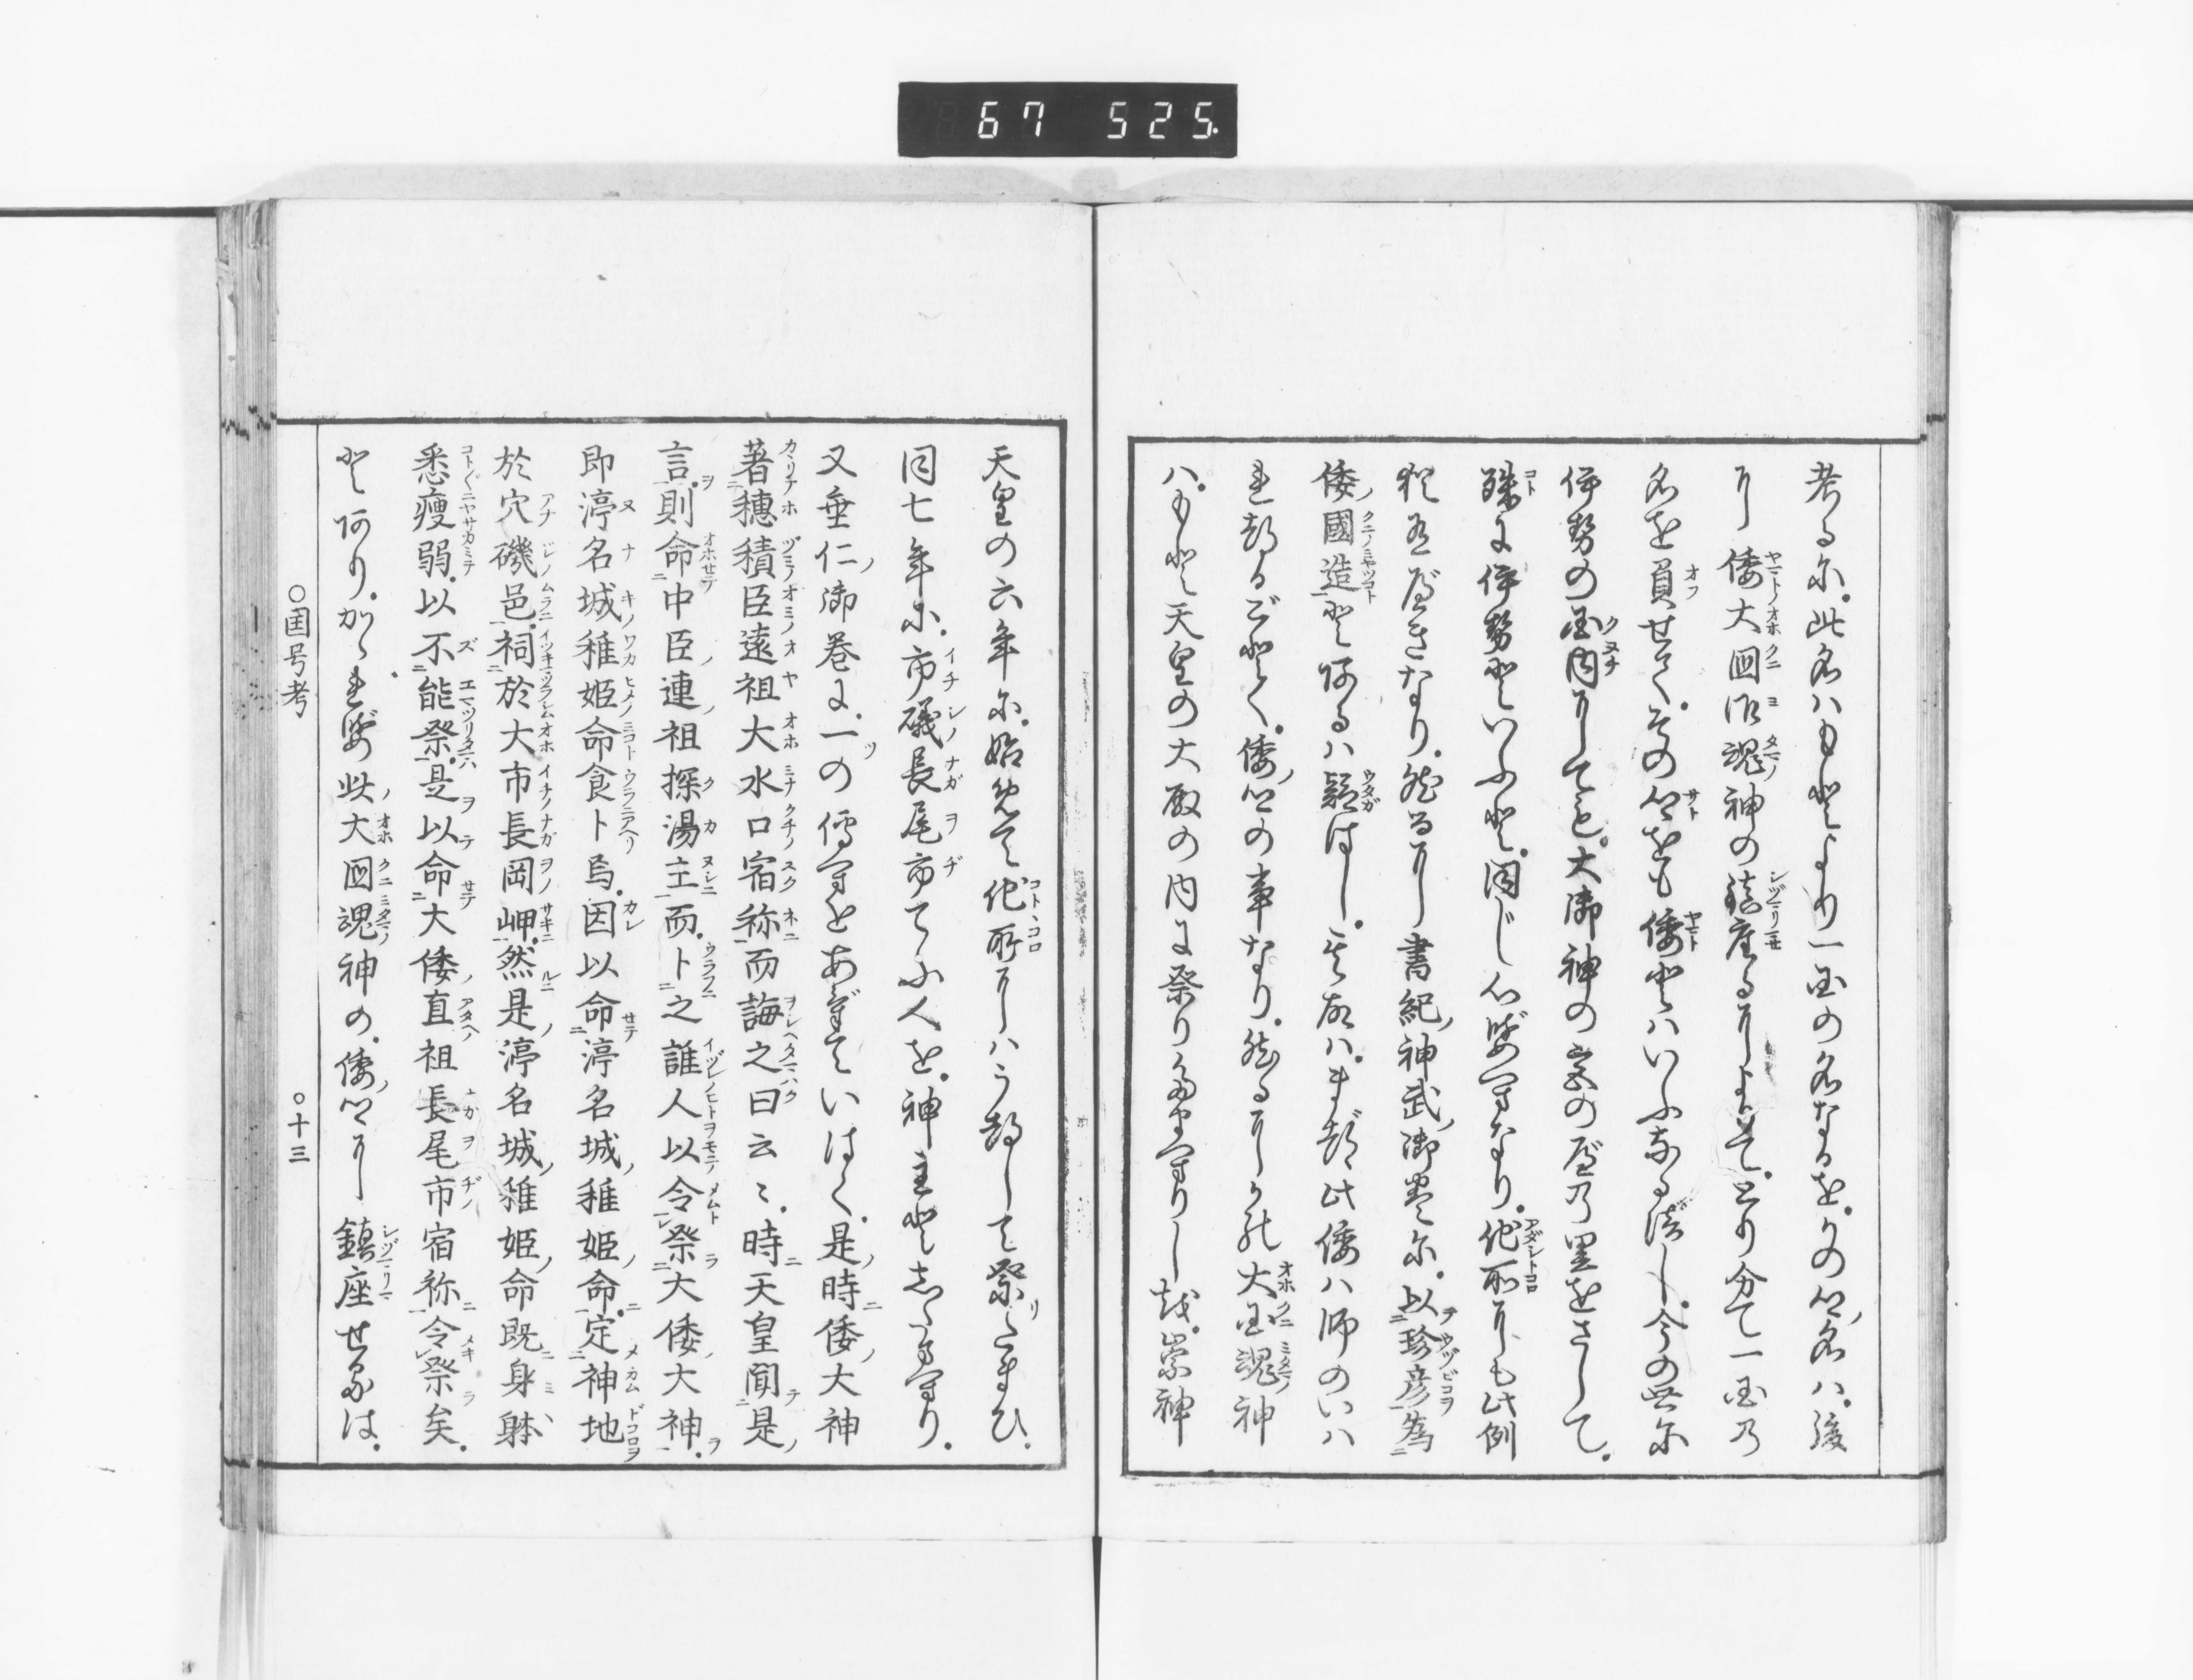 67 525
考るに、此名ハもとより一国の名なるを、かの郷ノ名ハ、後
に倭大国御魂神の鎮座るによりて、とり分て一国乃
名を負せて、その郷をも倭とハいふなるべし、今の世に
伊勢の国内にしても、大御神の宮の辺乃里をさして、
殊に伊勢といふと、同じ心ばへなり、他所にも此例
猶有べきなり、然るに書紀ノ神武ノ御巻に、以珍彦為
倭ノ國造とあるハ疑はし、其故ハ、まづ此倭ハ師のいハ
れつるごとく、倭ノ郷の事なり、然るにかの大国魂神
ハ、もと天皇の大殿の内に祭り給へりしを、崇神
天皇の六年に、始めて他所にハうつして祭りたまひ、
同七年に、市磯長尾市てふ人を、神主としたまへり、
又垂仁ノ御巻に、一の傳へをあげていはく、是時倭大神
著穗積臣遠祖大水口宿祢而誨之曰云〻、時天皇聞是
言、則命中臣連祖探湯主而、卜之誰人以令祭大倭大神、
即渟名城稚姫命食卜焉、因以命渟名城稚姫命、定神地
於穴磯邑、祠於大市長岡岬、然是渟名城稚姫命既身躰
悉瘦弱、以不能祭、是以命大倭直祖長尾市宿祢令祭矣、
とあり、かゝれば此大国魂神の、倭ノ郷に鎮座せるは、
○国号考
○十三